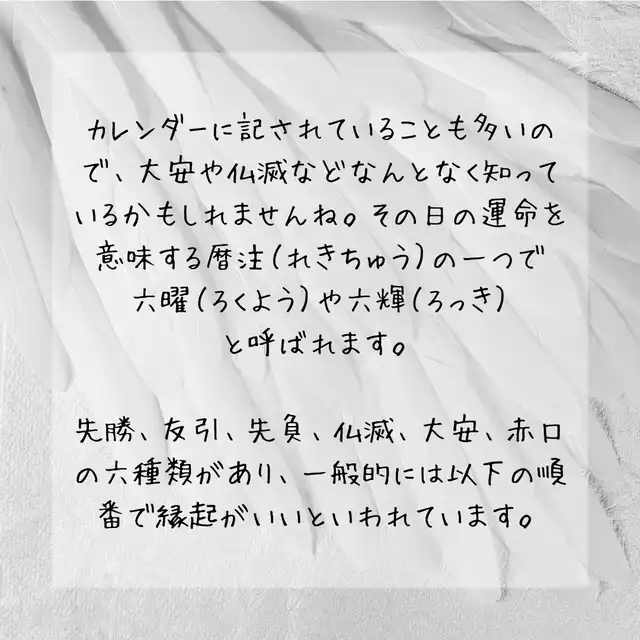 カレンダーに記されていることも多いの
で、大安や仏滅などなんとなく知って
いるかもしれませんね。その日の運命を
意味する暦注(れきちゅう)の一つで
六曜(ろくよう)や六輝(ろっき)
と呼ばれます。
先勝、友引、先負、仏滅、大安、赤口
の六種類があり、一般的には以下の順
番で縁起がいいといわれています。